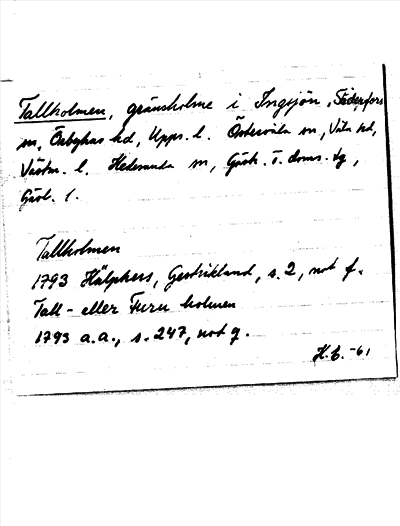 Tallholmen, gränsholme i Ingsjön, Söderfors
sn, Örbyhus hd, Upps. l. Östervåla sn, Våla hd,
Västm. l. Hedesunda sn, Gästr. ö. doms. tg,
Gävl. l.
Tallholmen
1793 Hülphers, Gestrikland, s. 2, not f.
Tall- eller Furu holmen
1793 a.a., s. 247, not g.
-61